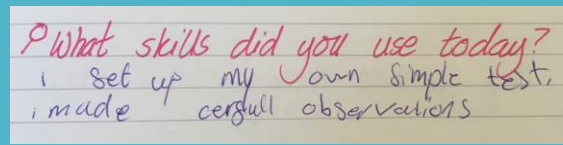 What skills did you use today?
i set up my own simple test.
i made cerfull observations